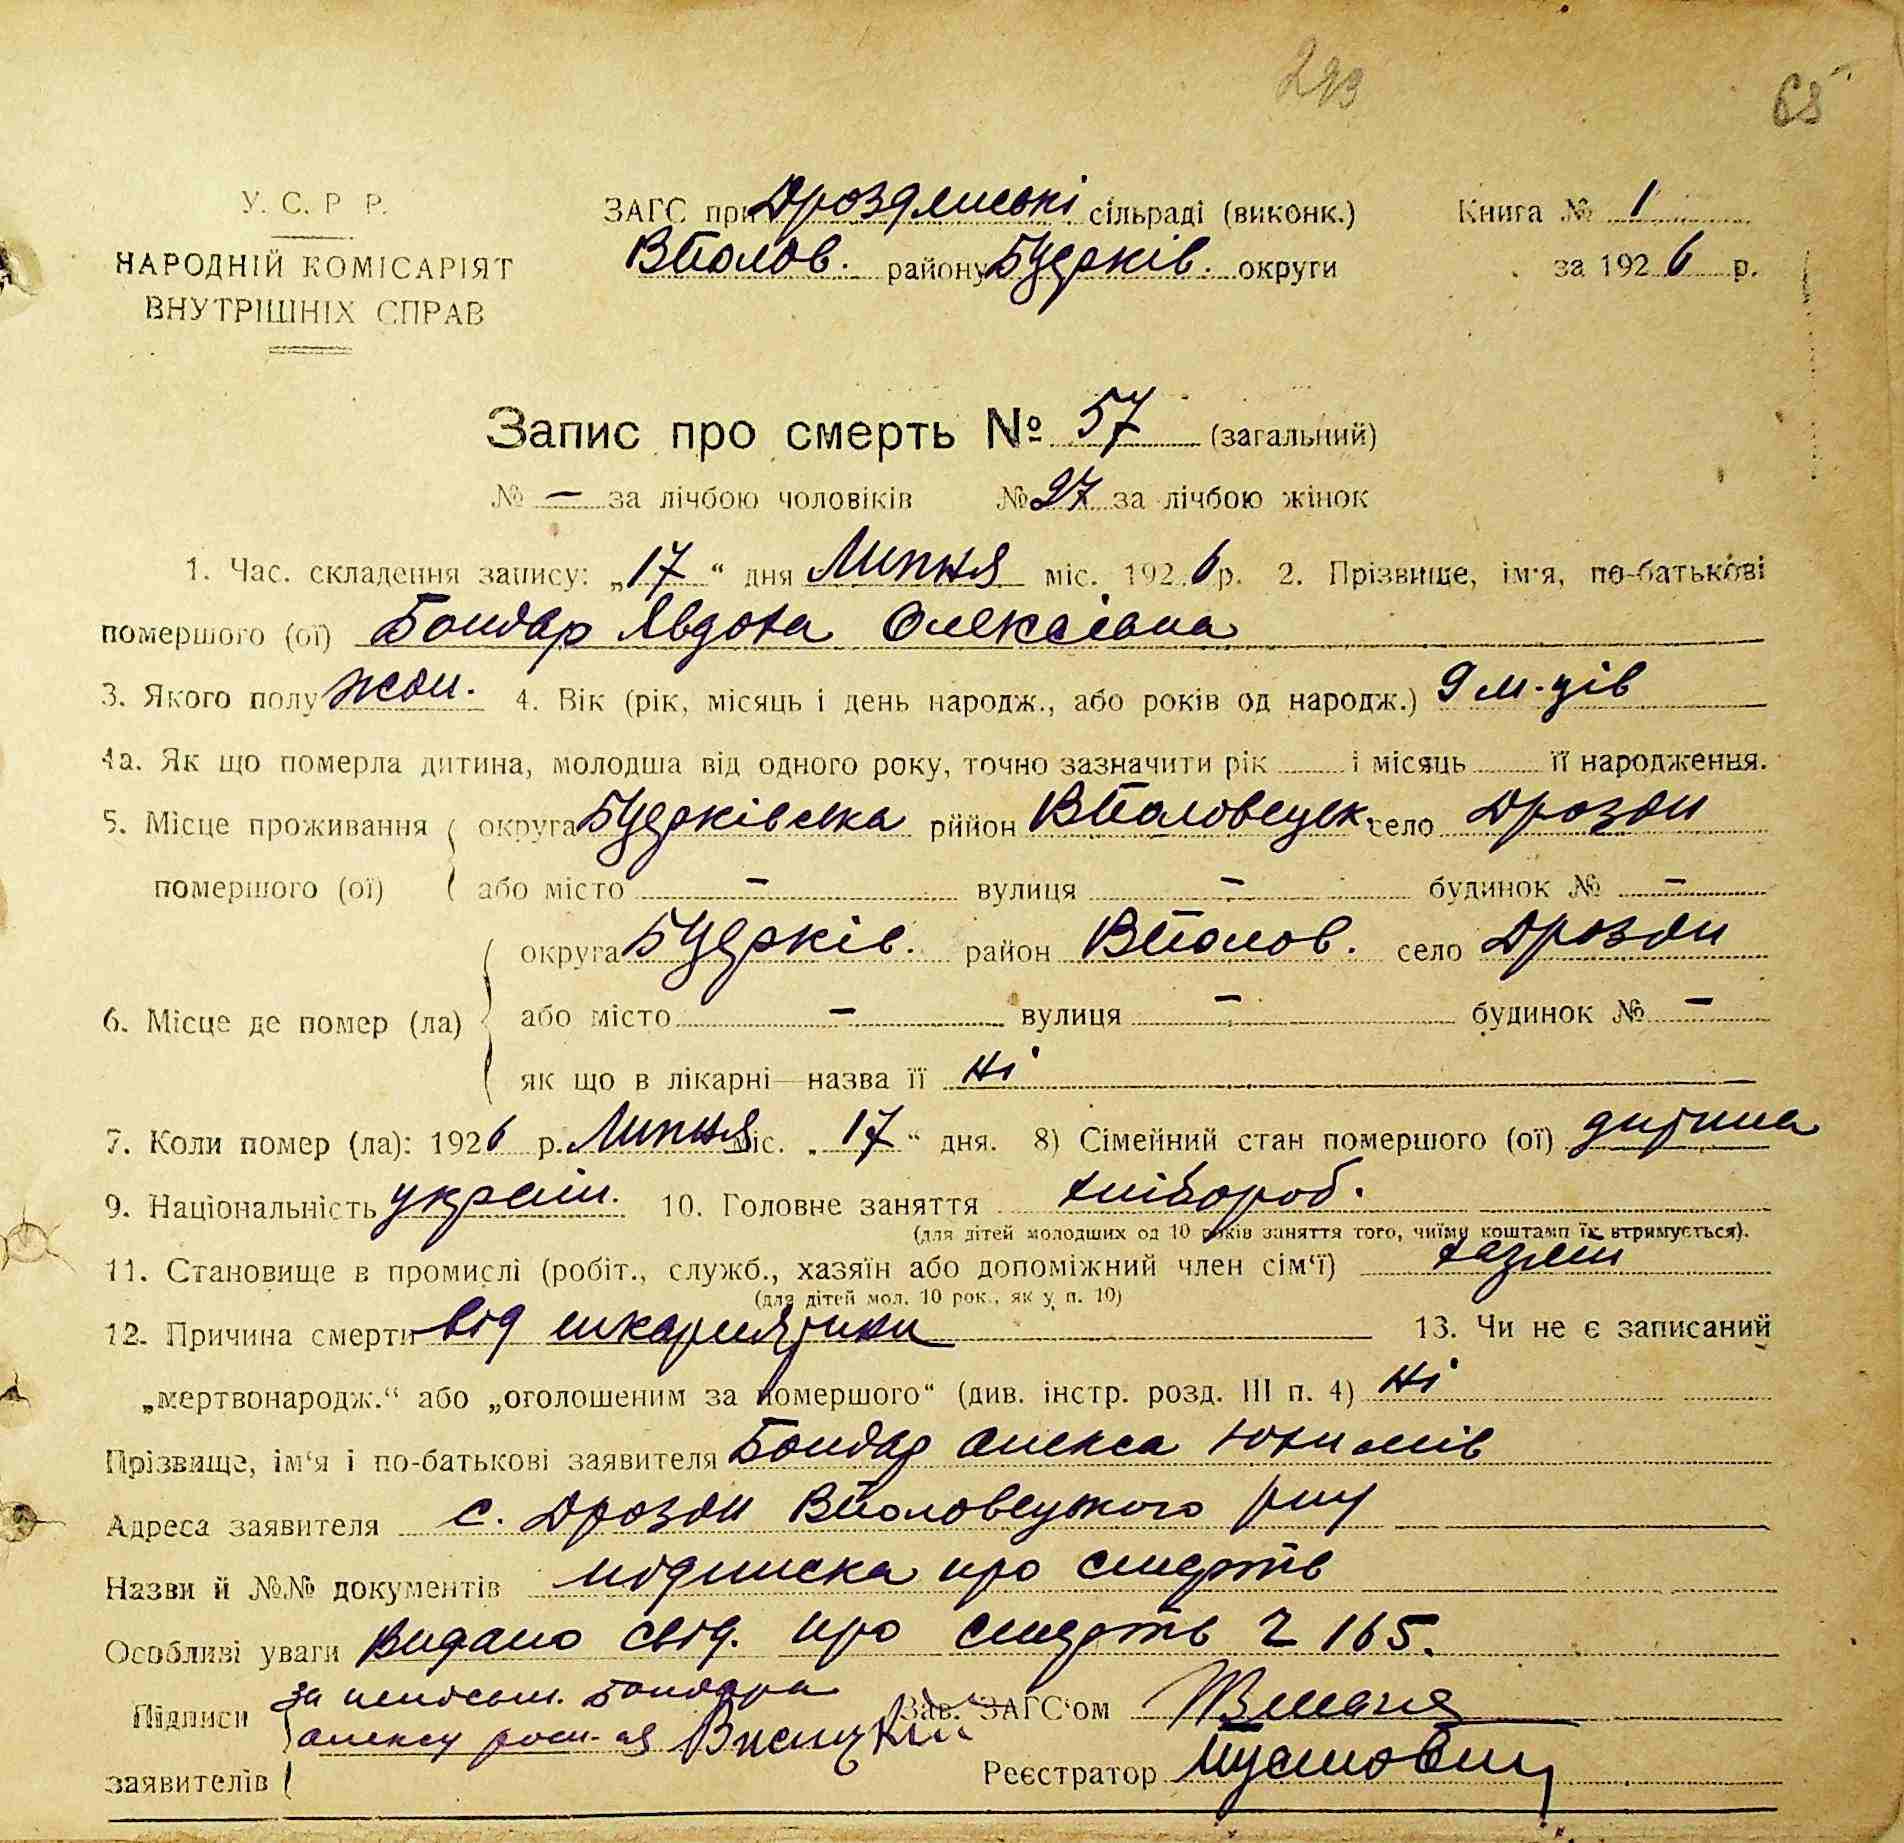 293
65
У. С. Р Р.
НАРОДНІЙ КОМІСАРІЯТ
ВНУТРІШНІХ СПРАВ
ЗАГС при Дроздянські сільраді (виконк.)
ВПолов. району БЦерків. округи
Книга № 1
за 1926 р.
Запис про смерть № 57 (загальний)
№ — за лічбою чоловіків № 27 за лічбою жінок
1. Час. складення запису: „17“ дня Липня міс. 1926 р. 2. Прізвище, ім'я, по-батькові
помершого (ої) Бондар Явдоха Олексіевна
3. Якого полу жон. 4. Вік (рік, місяць і день народж., або років од народж.) 9 м-ців
4а. Як що померла дитина, молодша від одного року, точно зазначити рік і місяць її народження.
5. Місце проживання округа БЦерківська рййон ВПоловецьк. село Дрозди
помершого (ої) або місто — вулиця — будинок № —
округа БЦерків. район ВПолов. село Дрозди
6. Місце де помер (ла) або місто — вулиця — будинок № —
як що в лікарні—назва її Ні
7. Коли помер (ла): 1926 р. Липня міс. „17“ дня. 8) Сімейний стан помершого (ої) дитина
9. Національність україн. 10. Головне заняття хлібороб.
(для дітей молодших од 10 років заняття того, чиїми коштами їх втримується).
11. Становище в промислі (робіт., служб., хазяїн або допоміжний член сім'ї) хазяїн
(для дітей мол. 10 рок., як у п. 10)
12. Причина смерти від шкарлятини 13. Чи не є записаний
„мертвонародж.“ або „оголошеним за помершого“ (див. інстр. розд. III п. 4) Ні
Прізвище, ім'я і по-батькові заявителя Бондар Олекса Юхимів
Адреса заявителя с. Дрозди ВПоловецького р-ну
Назви й №№ документів підписка про смерть
Особливі уваги Видано свід. про смерть Ч 165.
Підписи за неписьм. Бондара Зав. ЗАГС'ом
Олексу
заявителів Реєстратор